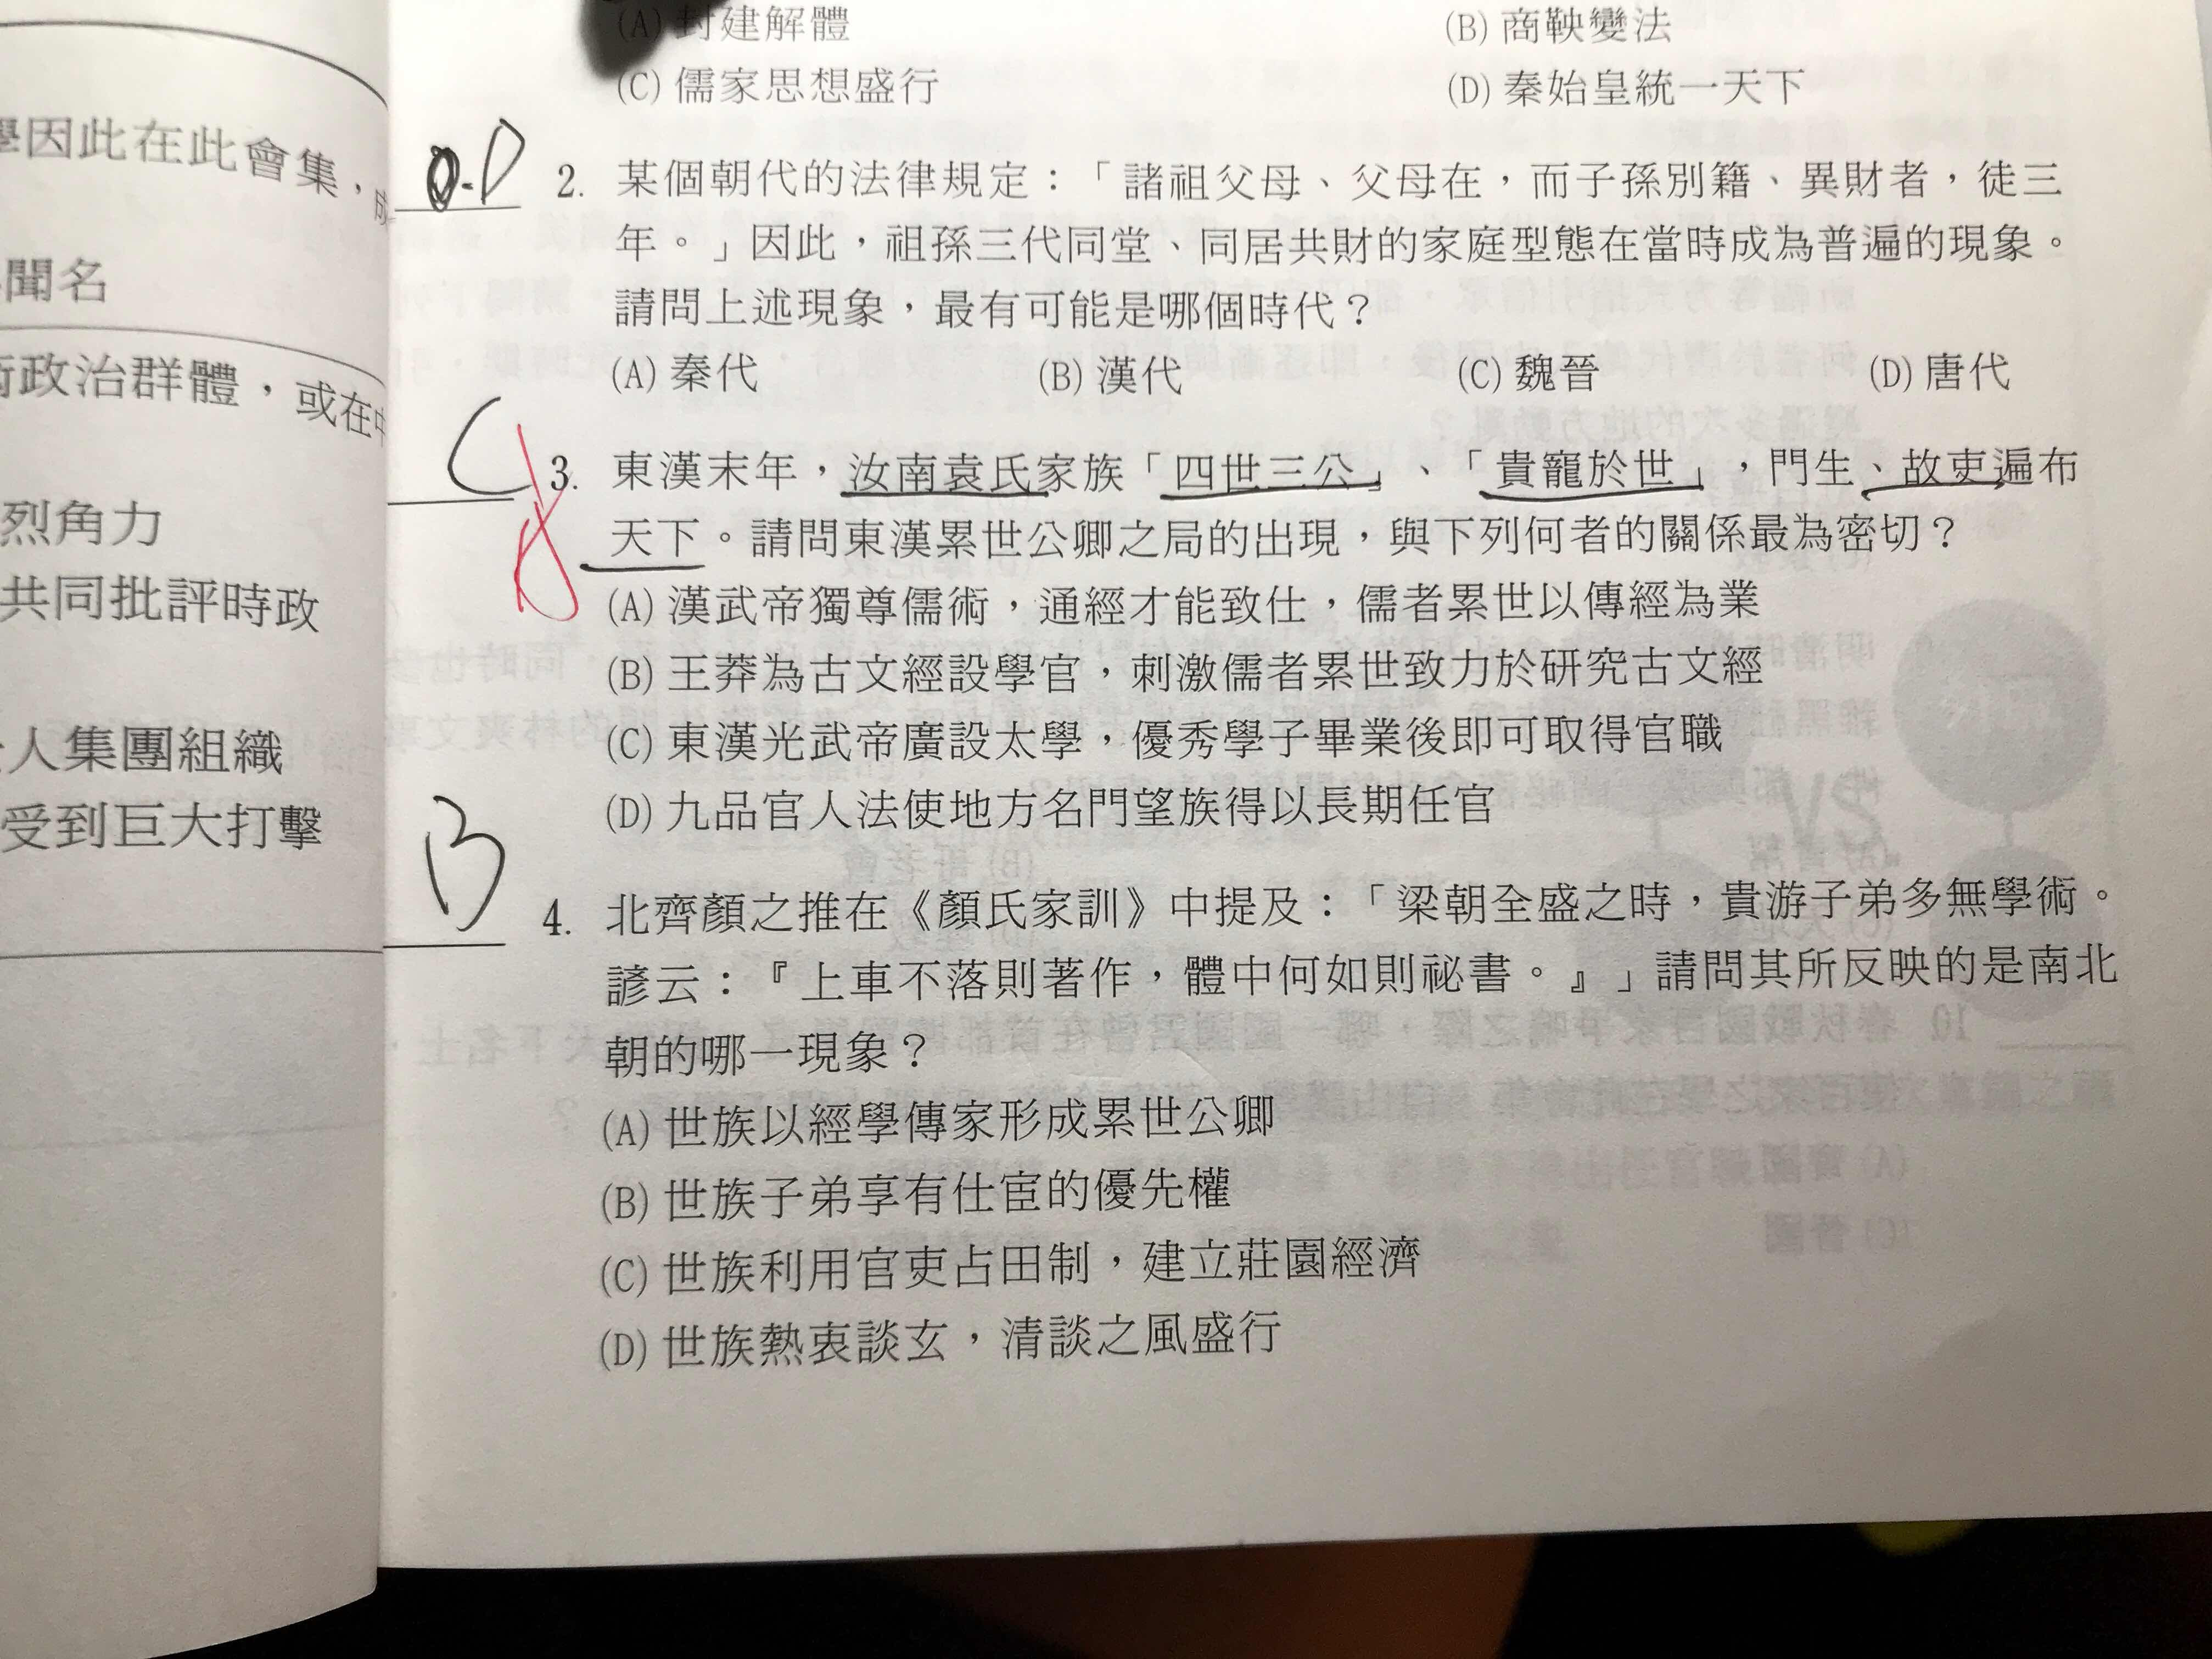 學因此在此會集，
聞名
政治群體，或在中
烈角力
共同批評時政
人集團組織
受到巨大打擊
(A) 封建解體
(B) 商鞅變法
(C) 儒家思想盛行
(D) 秦始皇統一天下
D
2. 某個朝代的法律規定：「諸祖父母、父母在，而子孫別籍、異財者，徒三
年。」因此，祖孫三代同堂、同居共財的家庭型態在當時成為普遍的現象。
請問上述現象，最有可能是哪個時代？
(A) 秦代 (B) 漢代 (C) 魏晉 (D) 唐代
C
A
3. 東漢末年，汝南袁氏家族「四世三公」、「貴寵於世」，門生、故吏遍布
天下。請問東漢累世公卿之局的出現，與下列何者的關係最為密切？
(A) 漢武帝獨尊儒術，通經才能致仕，儒者累世以傳經為業
(B) 王莽為古文經設學官，刺激儒者累世致力於研究古文經
(C) 東漢光武帝廣設太學，優秀學子畢業後即可取得官職
(D) 九品官人法使地方名門望族得以長期任官
B
4. 北齊顏之推在《顏氏家訓》中提及：「梁朝全盛之時，貴游子弟多無學術。
諺云：『上車不落則著作，體中何如則祕書。』」請問其所反映的是南北
朝的哪一現象？
(A) 世族以經學傳家形成累世公卿
(B) 世族子弟享有仕宦的優先權
(C) 世族利用官吏占田制，建立莊園經濟
(D) 世族熱衷談玄，清談之風盛行